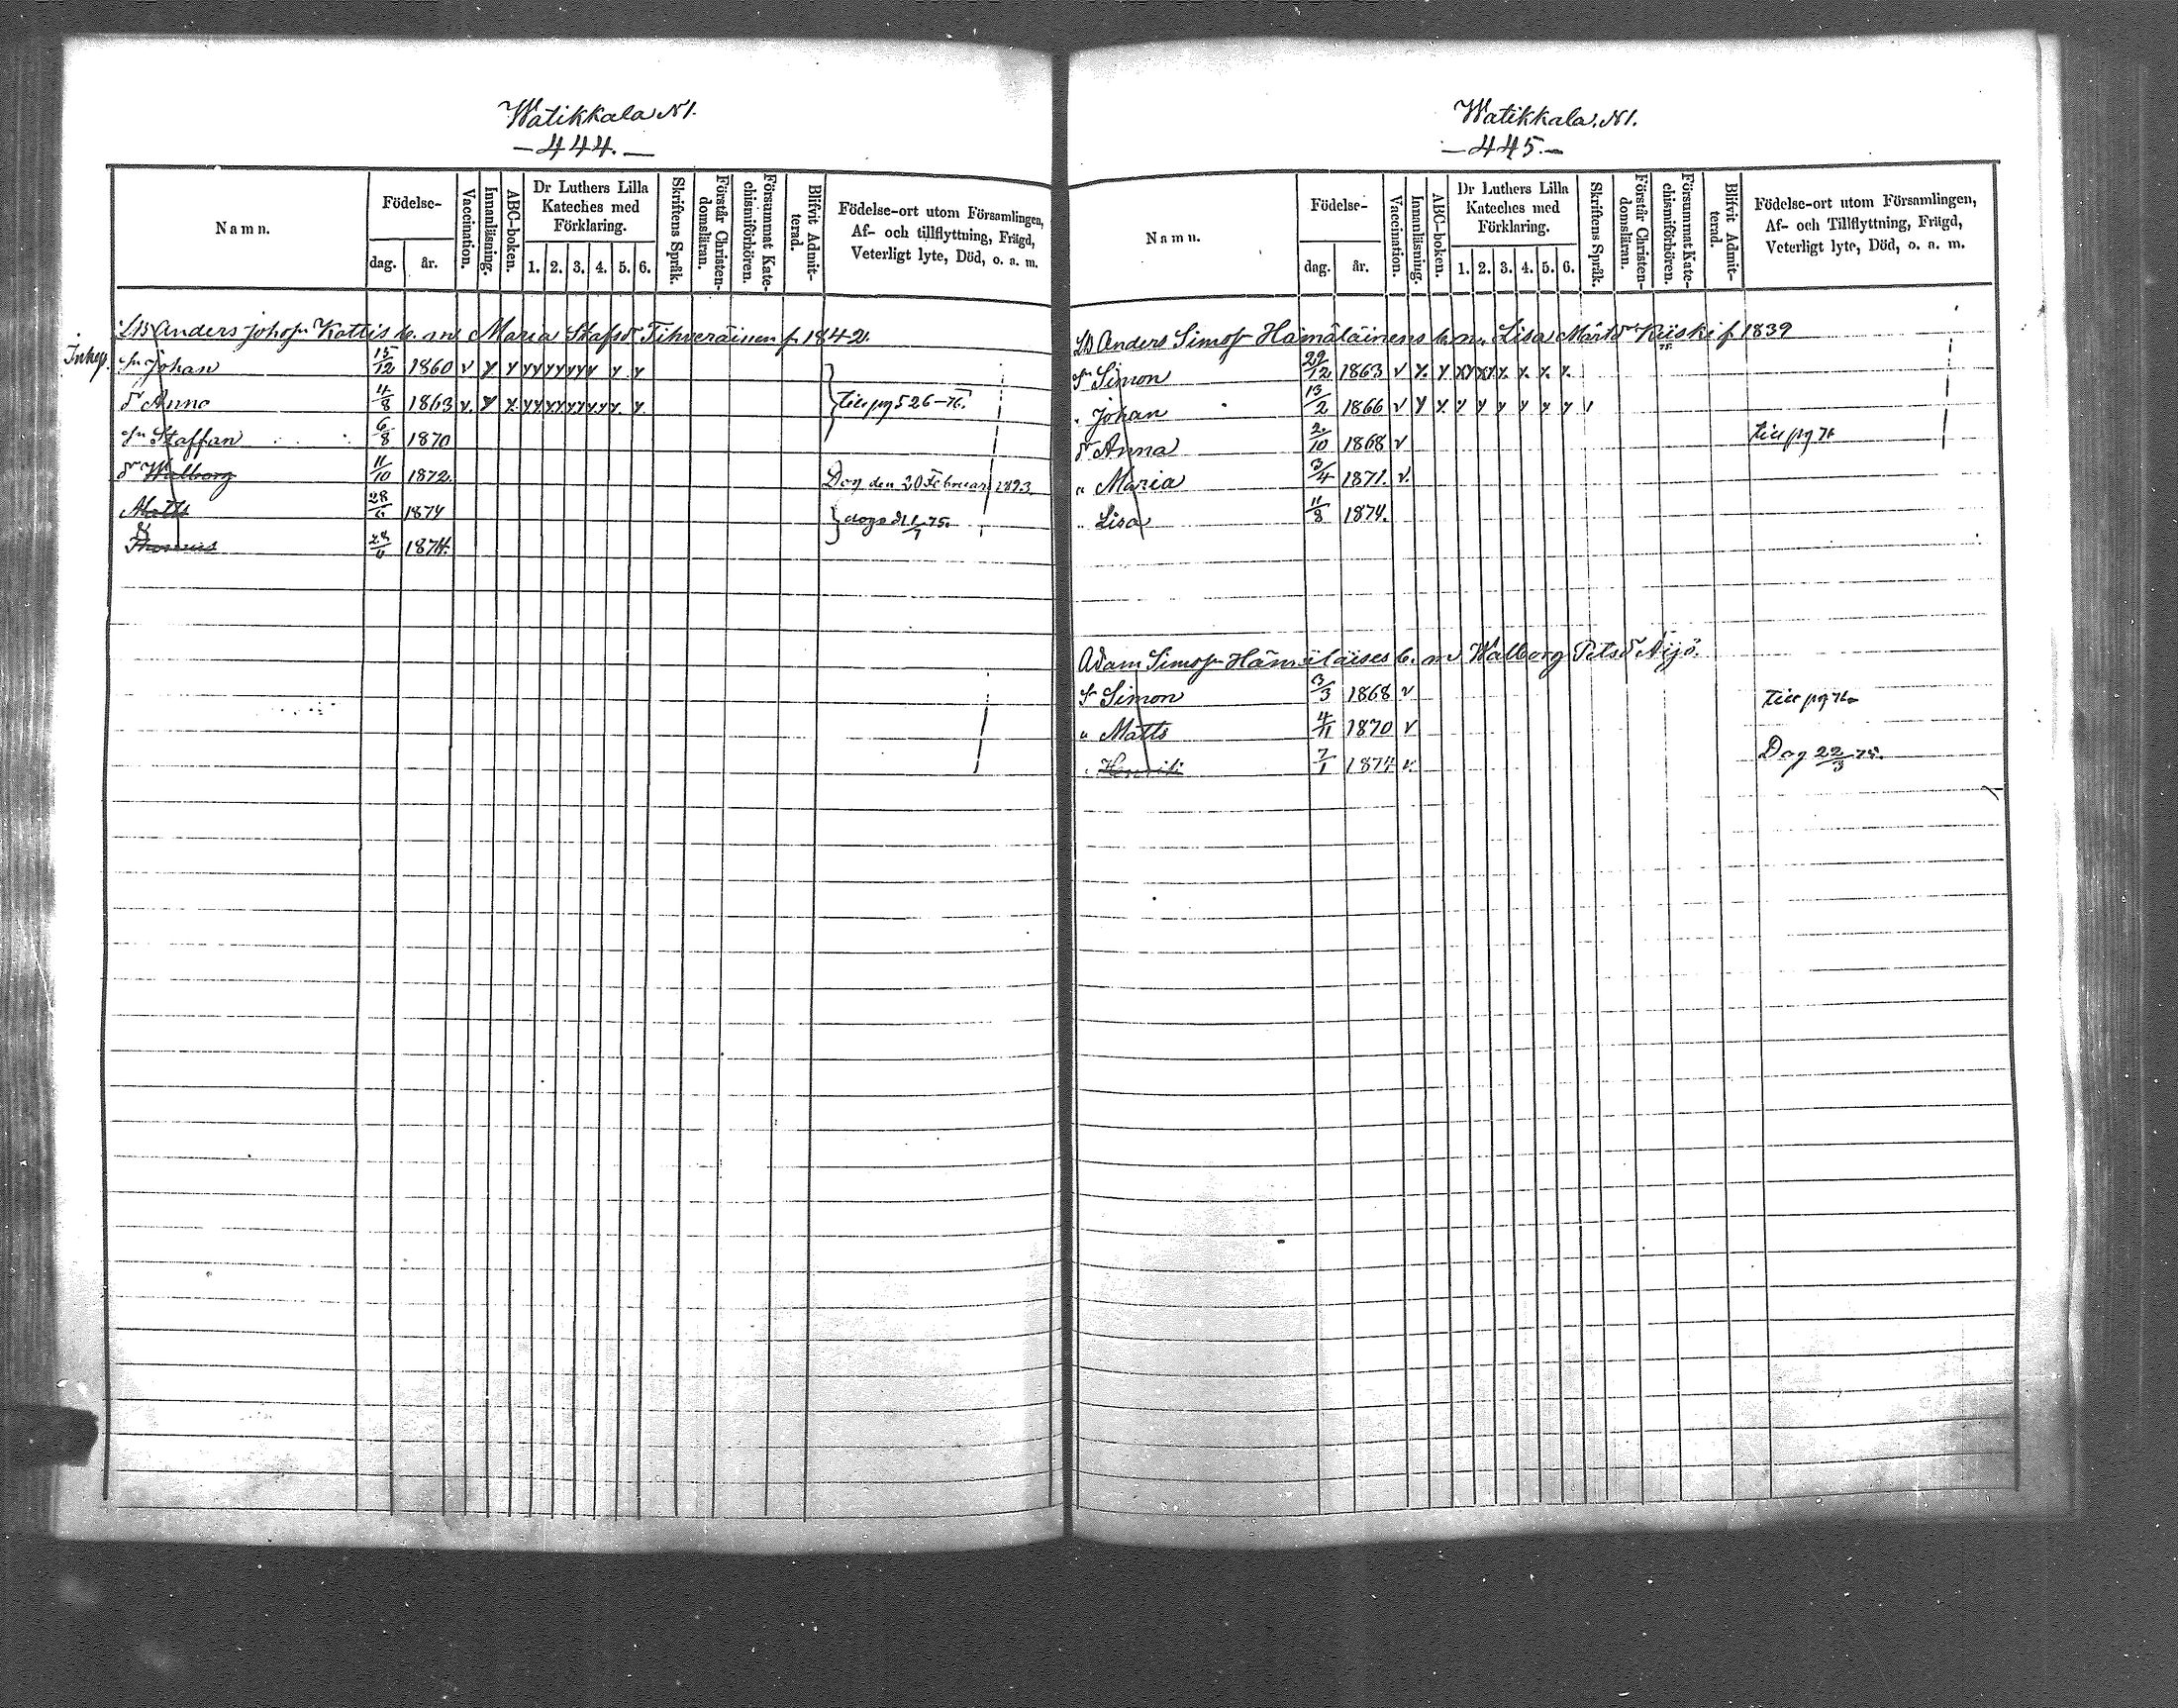 Watikkala N1.
— 444. —
Namn.
Födelse-
dag.
år.
Vaccination.
Innanläsning.
ABC-boken.
Dr Luthers Lilla
Kateches med
Förklaring.
1. 2. 3. 4. 5. 6.
Skriftens Språk.
Förstår Christen-
domsläran.
Försummat Kate-
chismiförhören.
Blifvit Admit-
terad.
Födelse-ort utom Församlingen,
Af- och tillflyttning, Frägd,
Veterligt lyte, Död, o. a. m.
Anders Johsn Kottis b. m. Maria Stafsdr Tihveräinen f. 1842.
Inhys.
sn Johan 15/12 1860 v y y y y y y y y y y
dr Anna 4/8 1863 v. y y. y y y y y y y. y.
till pg 526-76.
sn Staffan 6/8 1870
dr Walborg 11/10 1872.
Dog den 20 Februari 1893.
Matts 28/6 1874
dogo d 1/7 75.
&
Thomas 28/6 1874.
Watikkala. N1.
— 445. —
Namn.
Födelse-
dag.
år.
Vaccination.
Innanläsning.
ABC-boken.
Dr Luthers Lilla
Kateches med
Förklaring.
1. 2. 3. 4. 5. 6.
Skriftens Språk.
Förstår Christen-
domsläran.
Försummat Kate-
chismiförhören.
Blifvit Admit-
terad.
Födelse-ort utom Församlingen,
Af- och Tillflyttning, Frägd,
Veterligt lyte, Död, o. a. m.
Anders Simosn Hämäläinens b. m. Lisa Märtdr Kiiski f 1839
sn Simon 29/12 1863 v y. y x y x y y. y. y. y.
" Johan 13/2 1866 v y y. y y y y y y
dr Anna 2/10 1868 v
till pg 71
" Maria 3/4 1871. v.
" Lisa 11/8 1874.
Adam Simosn Hämäläises b. m Walborg Petsdr Äijö.
sn Simon 3/3 1868 v
" Matts 4/11 1870 v
" Henrik 7/1 1874 v.
Dog 22/3 75.